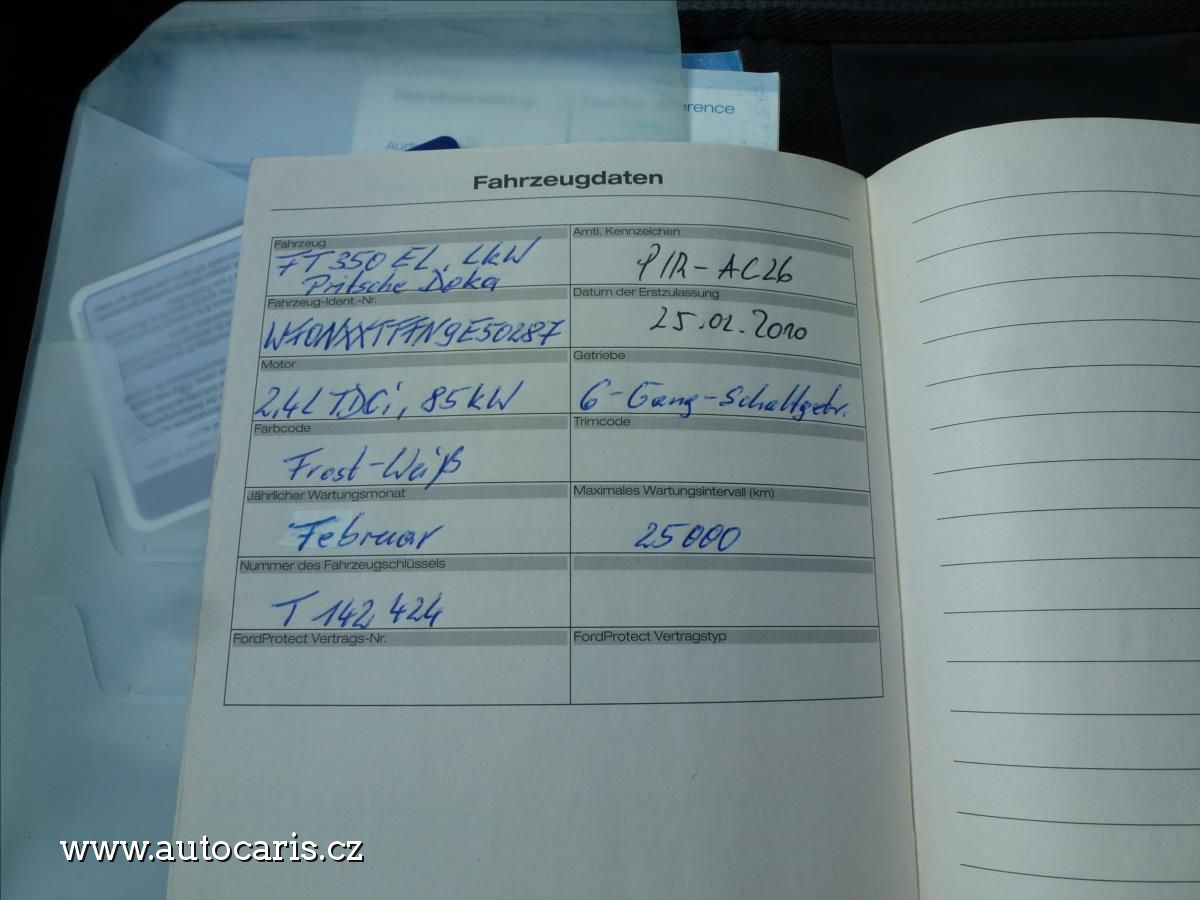 erence
Fahrzeugdaten
Fahrzeug
FT 350 EL, LKW
Pritsche Doka
Amtl. Kennzeichen
PIR-AC26
Fahrzeug-Ident.-Nr.
WF0NXXTTFN9E50287
Datum der Erstzulassung
25.02.2010
Motor
2,4L TDCi, 85kW
Getriebe
6-Gang-Schaltgetr.
Farbcode
Frost-Weiß
Trimcode
Jährlicher Wartungsmonat
Februar
Maximales Wartungsintervall (km)
25000
Nummer des Fahrzeugschlüssels
T 142424
FordProtect Vertrags-Nr.
FordProtect Vertragstyp
www.autocaris.cz